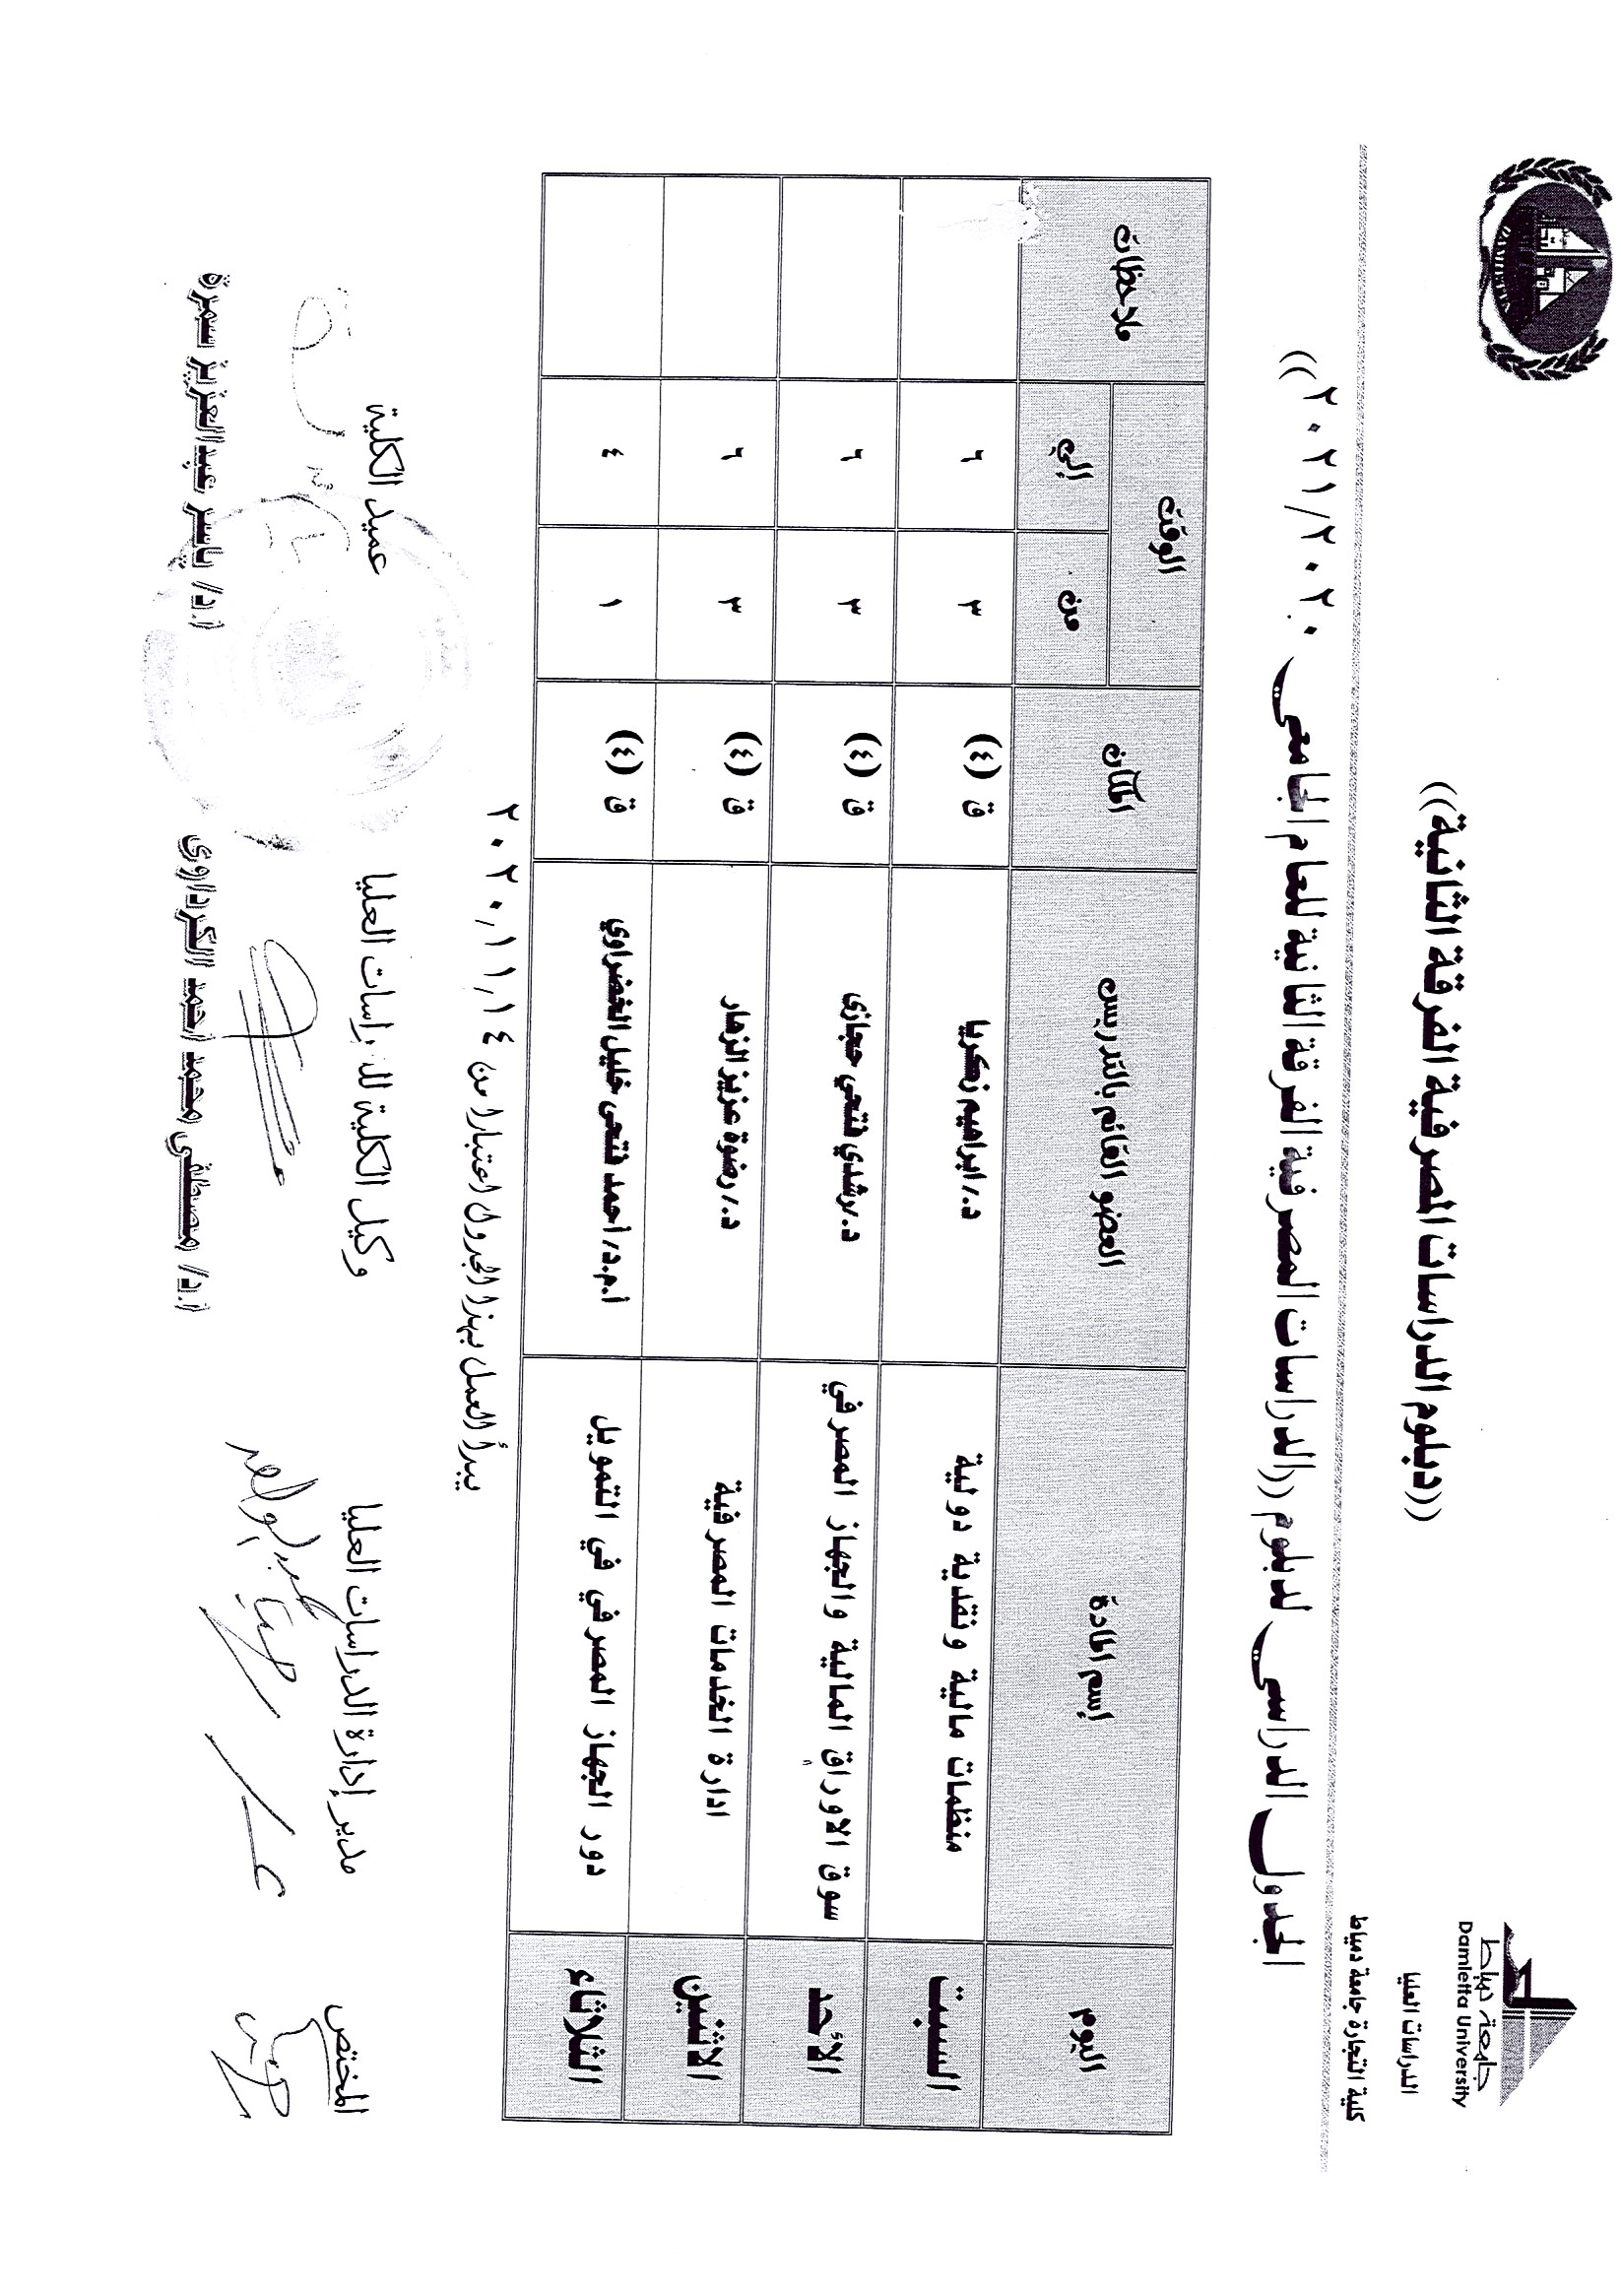 جامعة دمياط
Damietta University
الدراسات العليا
كلية التجارة جامعة دمياط
((دبلوم الدراسات المصرفية الفرقة الثانية))
الجدول الدراسي لدبلوم ((الدراسات المصرفية الفرقة الثانية للعام الجامعي ٢٠٢١/٢٠٢٠))
اليوم إسم المادة العضو القائم بالتدريس المكان الوقت ملاحظات
من إلي
السبت منظمات مالية ونقدية دولية د./ابراهيم زكريا ق (٤) ٣ ٦
الأحد سوق الاوراق المالية والجهاز المصرفي د./رشدي فتحي حجازى ق (٤) ٣ ٦
الاثنين ادارة الخدمات المصرفية د./رضوة عزيز الزهار ق (٤) ٣ ٦
الثلاثاء دور الجهاز المصرفي في التمويل ا.م.د/احمد فتحى خليل الخضراوي ق (٤) ١ ٤
يبدأ العمل بهذا الجدول اعتبارا من ٢٠٢٠,١١,١٤
المختص مدير إدارة الدراسات العليا وكيل الكلية للدراسات العليا عميد الكلية
ا.د/ مصطفى محمد احمد الكرداوى ا.د/ ياسر عبدالعزيز سمرة